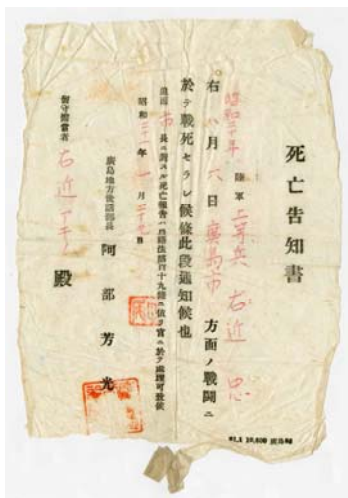 死亡告知書
昭和二十年 陸軍 上等兵 右近 忠
右 八月 六日 廣島市 方面ノ戰鬪ニ
於テ戰死セラレ候條此段通知候也
市 長ニ對スル死亡報告ハ戸籍法第百十九條ニ依リ官ニ於テ處理可致候
昭和二十一年 一月二十九日
廣島地方世話部長 阿部芳光
留守擔當者 右近アキノ 殿
21.1 10,000